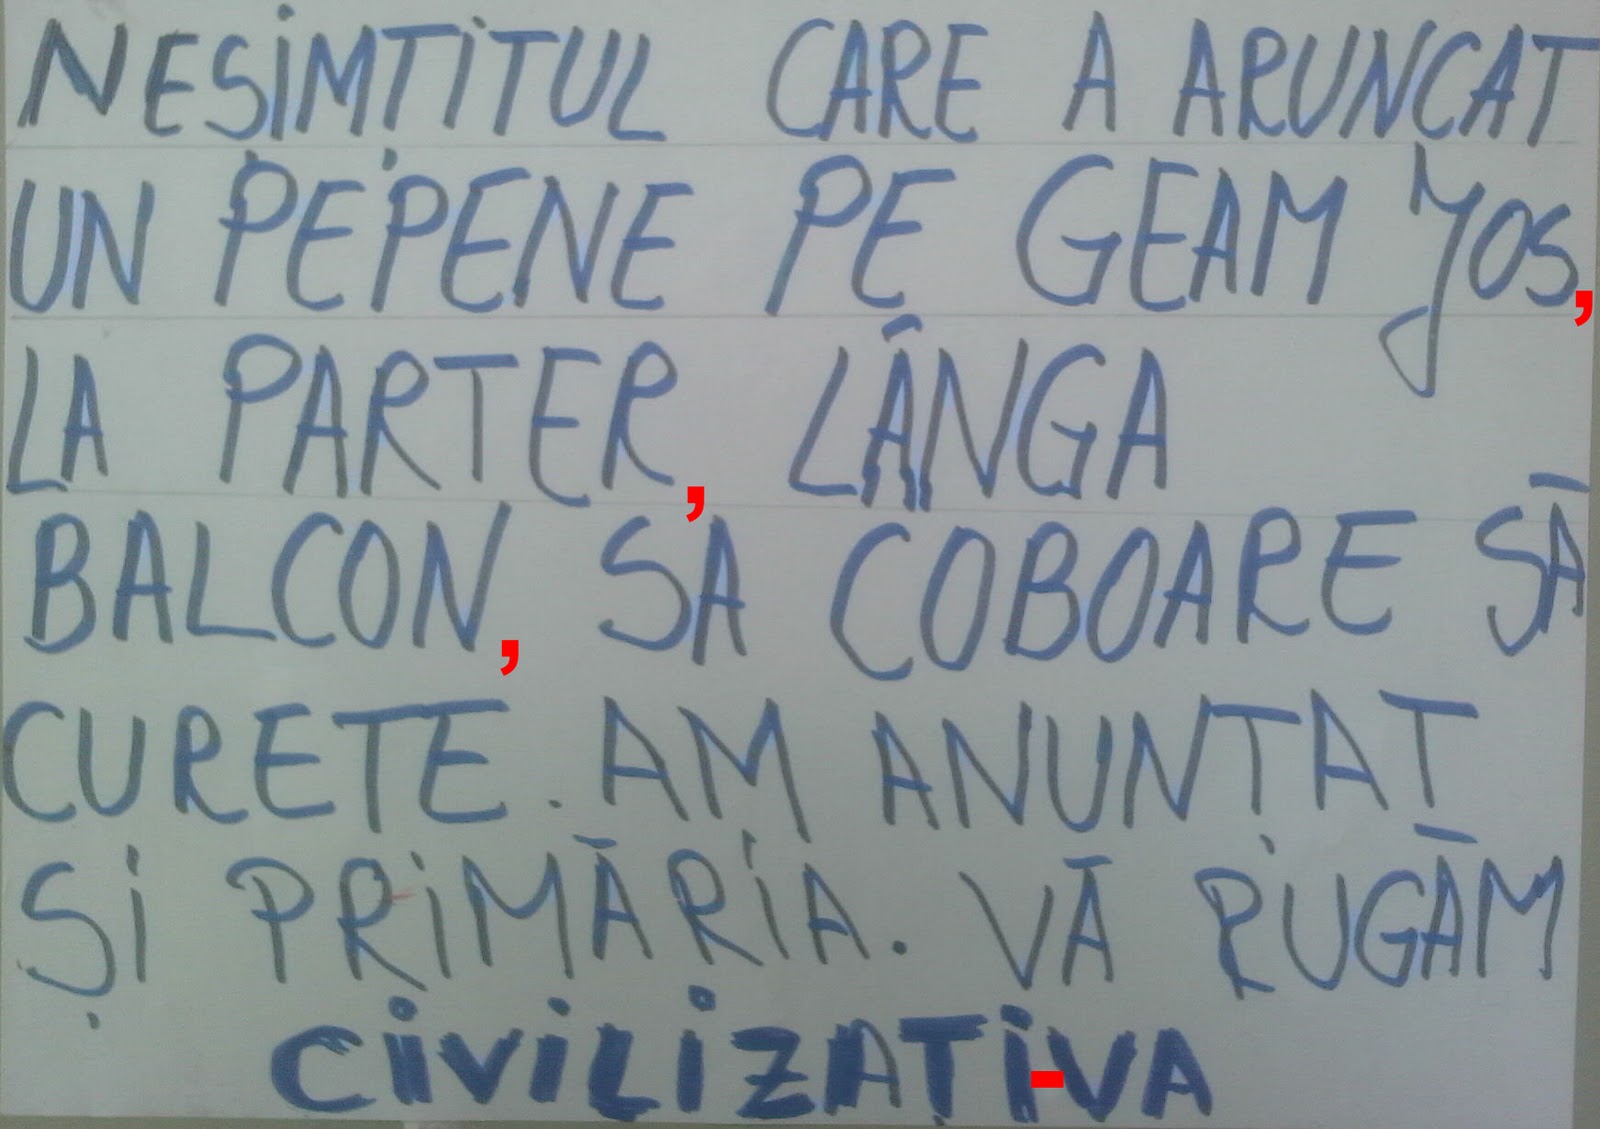 NEȘIMȚIȚUL CARE A ARUNCAT
UN PEPENE PE GEAM JOS,
LA PARTER, LÂNGA
BALCON, SA COBOARE SĂ
CURETE. AM ANUNTAT
ȘI PRIMĂRIA. VĂ RUGĂM
CIVILIZAȚI-VA